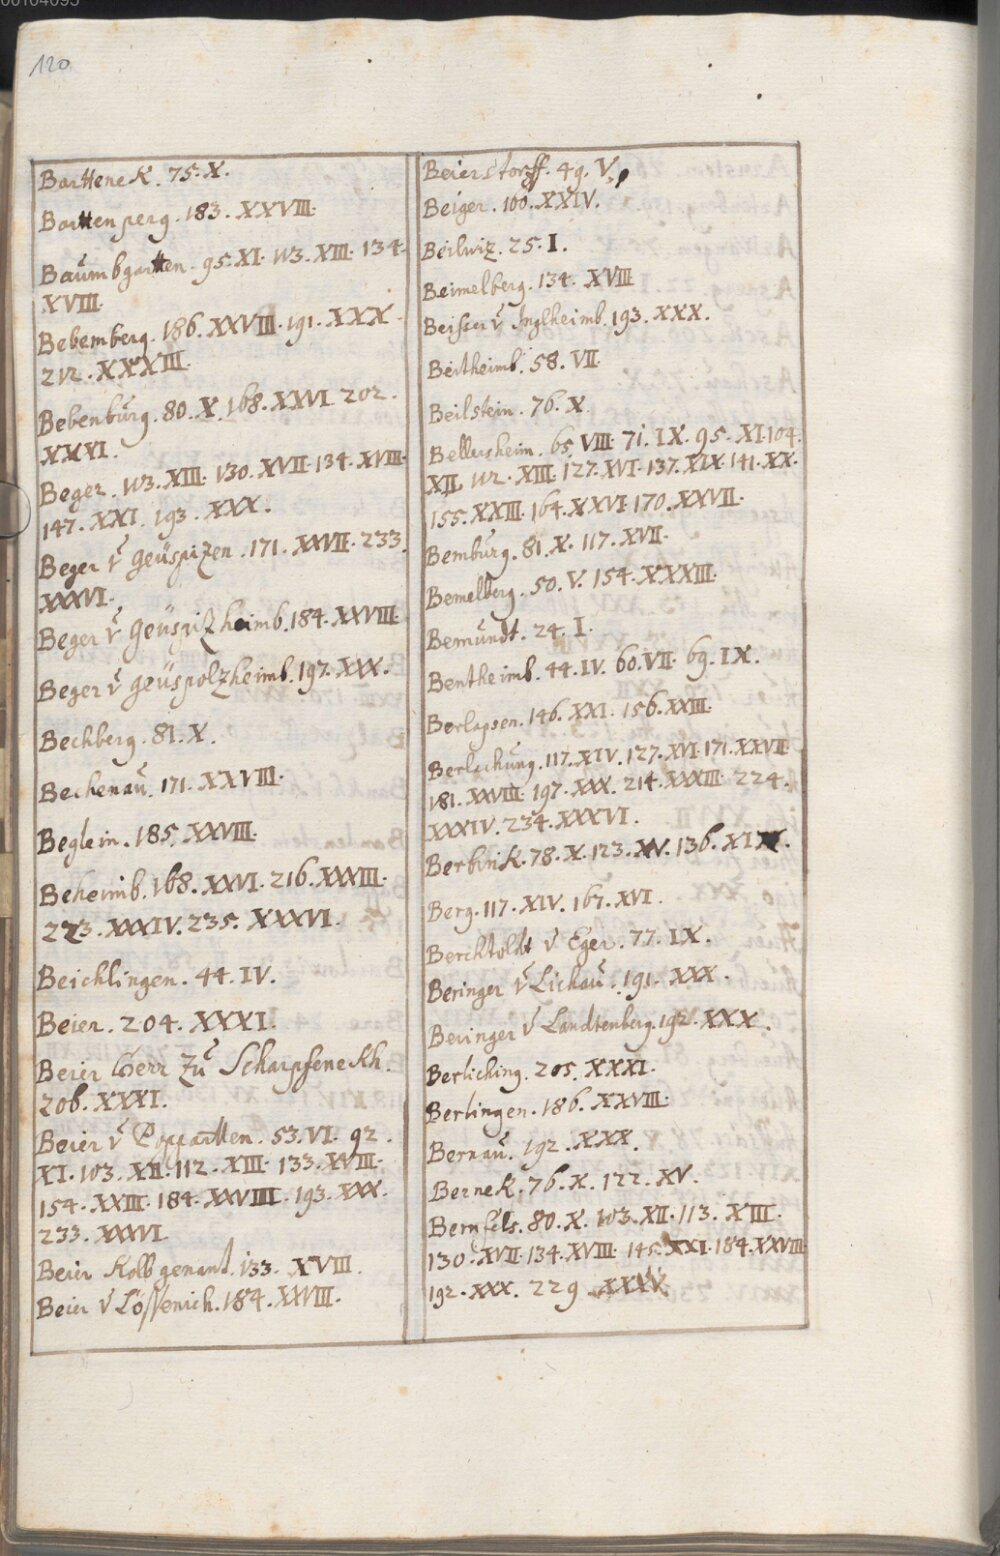 00104095
120
Barttenek. 75. X.
Barttenperg. 183. XXVIII.
Baumbgartten. 95. XI. 103. XIII. 134.
XVIII.
Bebemberg. 186. XXVIII. 191. XXX.
212. XXXIII.
Bebenburg. 80. X. 168. XXVI. 202.
XXXI.
Beger. 103. XIII. 130. XVII. 134. XVIII.
147. XXI. 193. XXX.
Beger v̄ Geüspizen. 171. XXVII. 233.
XXXVI.
Beger v̄ Geüspizheimb. 184. XXVIII.
Beger v̄ Geüspolzheimb. 197. XXX.
Bechberg. 81. X.
Bechenau. 171. XXVIII.
Beglein. 185. XXVIII.
Beheimb. 168. XXVI. 216. XXXIII.
223. XXXIV. 235. XXXVI.
Beichlingen. 44. IV.
Beier. 204. XXXI.
Beier Herr zu Scharpfenekh.
206. XXXI.
Beier v̄ Poppartten. 53. VI. 92.
XI. 103. XII. 112. XIII. 133. XVIII.
154. XXIII. 184. XXVIII. 193. XXX.
233. XXXVI.
Beier Kolb genant. 133. XVIII.
Beier v̄ Lössenich. 184. XXVIII.
Beierstorff. 49. V.
Beiger. 100. XXIV.
Beilwiz. 25. I.
Beimelberg. 134. XVIII
Beisser v̄ Inglheimb. 193. XXX.
Beitheimb. 58. VII.
Beilstein. 76. X.
Bellersheim. 65. VIII. 71. IX. 95. XI. 104.
XII. 112. XIII. 127. XVI. 137. XIX. 141. XX.
155. XXIII. 164. XXVI. 170. XXVII.
Bemburg. 81. X. 117. XVII.
Bemelberg. 50. V. 154. XXXIII.
Bemundt. 24. I.
Bentheimb. 44. IV. 60. VII. 69. IX.
Berlapsen. 146. XXI. 156. XXIII.
Berlichung. 117. XIV. 127. XVI. 171. XXVII.
181. XXVIII. 197. XXX. 214. XXXIII. 224.
XXXIV. 234. XXXVI.
Berbink. 78. X. 123. XV. 136. XIX.
Berg. 117. XIV. 167. XVI.
Berchtoldt v Eger. 77. IX.
Beringer v̄ Lichau. 191. XXX.
Beringer v Landtenberg. 192. XXX.
Berliching. 205. XXXI.
Berlingen. 186. XXVIII.
Bernau. 192. XXX.
Bernek. 76. X. 122. XV.
Bernfels. 80. X. 103. XII. 113. XIII.
130. XVII. 134. XVIII. 145. XXI. 184. XXVIII
192. XXX. 229. XXXV.